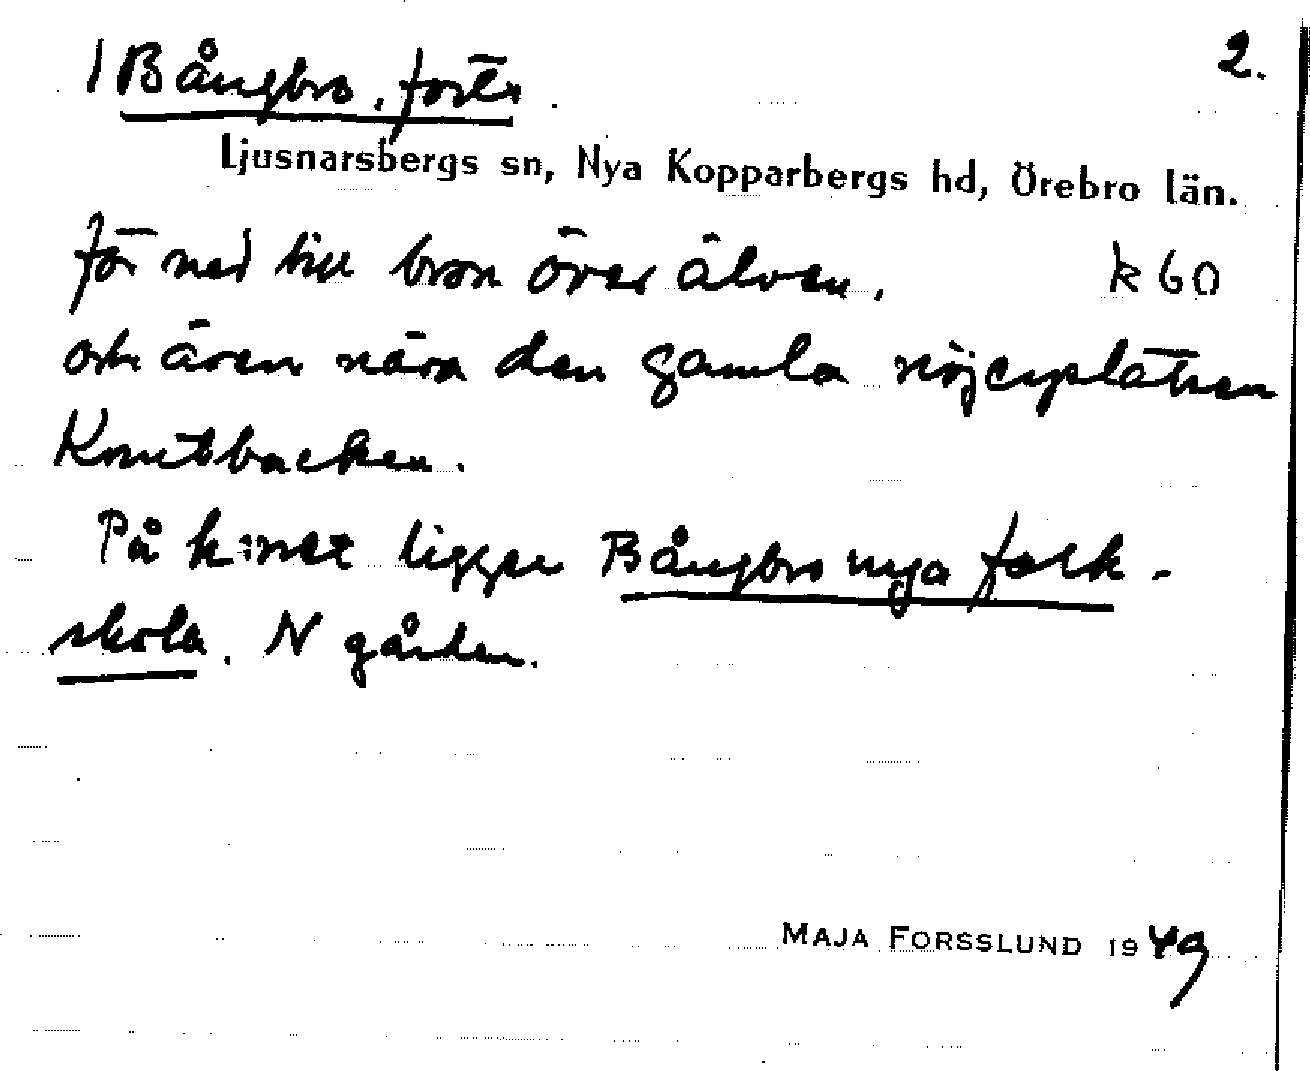 1 Bångbro, forts. 2.
Ljusnarsbergs sn, Nya Kopparbergs hd, Örebro län.
för ned till bron över älven, k 60
och även nära den gamla nöjesplatsen
Knutsbacken.
På k:net ligger Bångbro nya folk-
skola. N gården.
MAJA FORSSLUND 1949